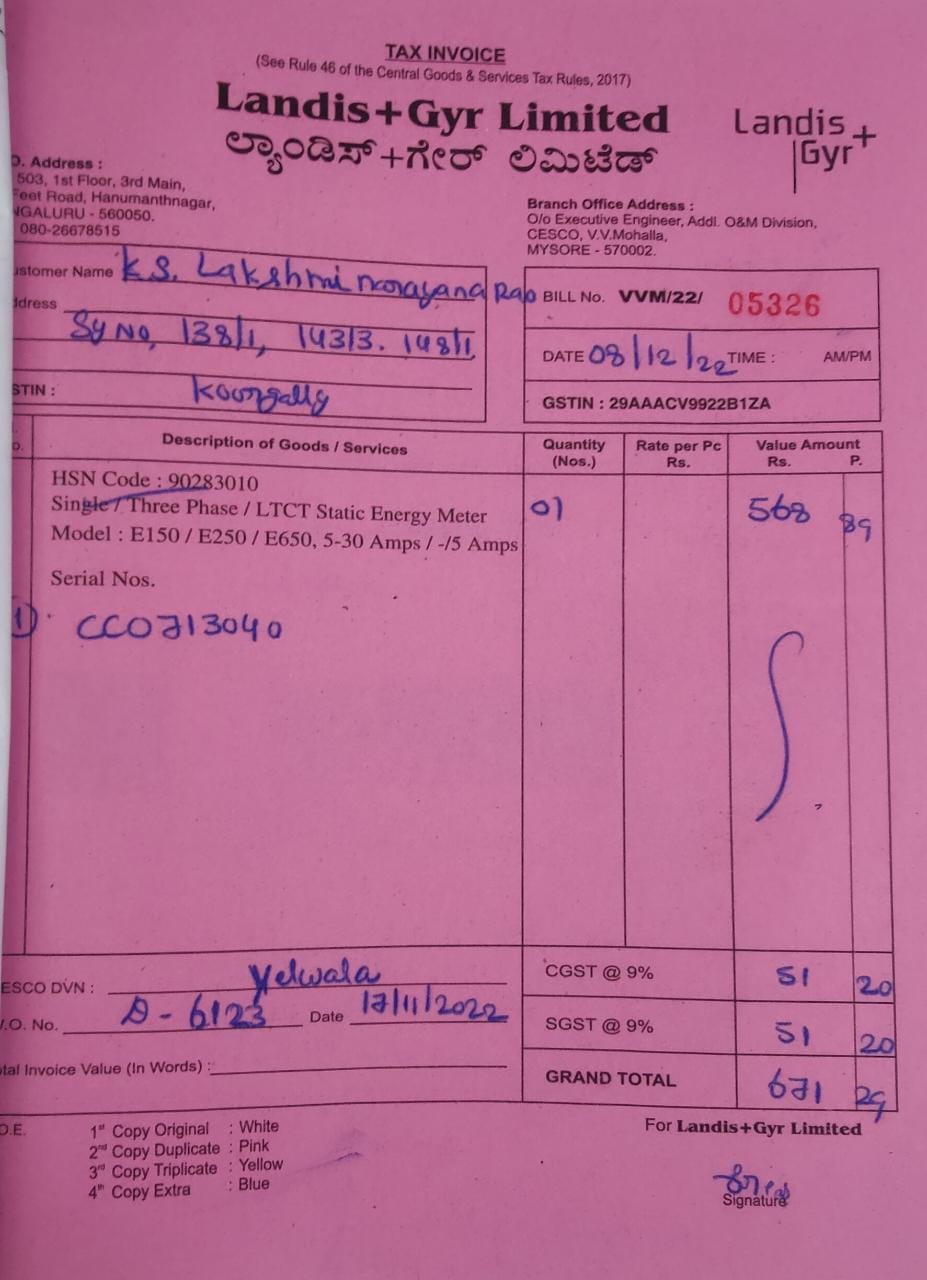 TAX INVOICE
(See Rule 46 of the Central Goods & Services Tax Rules, 2017)
Landis+Gyr Limited
ಲ್ಯಾಂಡಿಸ್+ಗೇರ್ ಲಿಮಿಟೆಡ್
Landis
Gyr+
O. Address :
503, 1st Floor, 3rd Main,
Feet Road, Hanumanthnagar,
NGALURU - 560050.
080-26678515
Branch Office Address :
O/o Executive Engineer, Addl. O&M Division,
CESCO, V.V.Mohalla,
MYSORE - 570002.
ustomer Name K.S. Lakshmi narayana Rao
ddress
Sy No, 138/1, 143/3. 148/1,
STIN : Koorgally
BILL No. VVM/22/ 05326
DATE 08/12/22 TIME : AM/PM
GSTIN : 29AAACV9922B1ZA
Description of Goods / Services Quantity (Nos.) Rate per Pc Rs. Value Amount Rs. P.
HSN Code : 90283010
Single / Three Phase / LTCT Static Energy Meter 01 568 89
Model : E150 / E250 / E650, 5-30 Amps / -/5 Amps
Serial Nos.
1) CC0713040
ESCO DVN : Yelwala
CGST @ 9% 51 20
.O. No. D - 6123 Date 17/11/2022
SGST @ 9% 51 20
tal Invoice Value (In Words) :
GRAND TOTAL 671 29
O.E.
1st Copy Original : White
2nd Copy Duplicate : Pink
3rd Copy Triplicate : Yellow
4th Copy Extra : Blue
For Landis+Gyr Limited
Signature